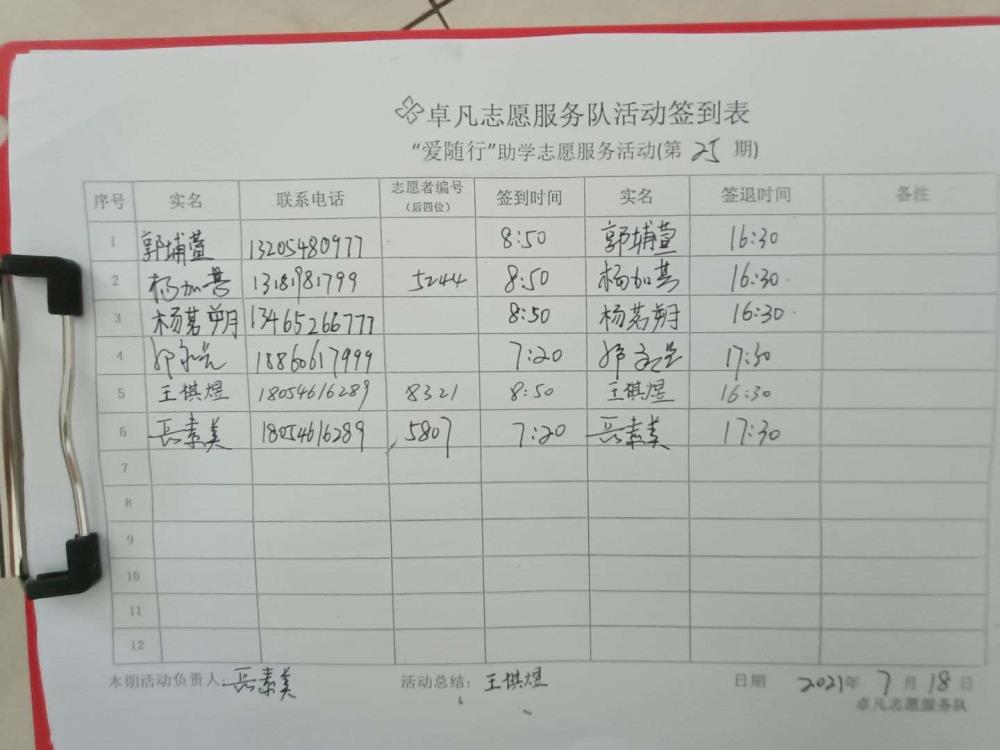 卓凡志愿服务队活动签到表
“爱随行”助学志愿服务活动(第 25 期)
序号 实名 联系电话 志愿者编号(后四位) 签到时间 实名 签退时间 备注
1 郭埔萱 13205480977 8:50 郭埔萱 16:30
2 杨加其 13181981799 5244 8:50 杨加其 16:30
3 杨茗朔 13465266777 8:50 杨茗朔 16:30
4 18860617999 7:20 17:30
5 王棋煜 18054616289 8321 8:50 王棋煜 16:30
6 岳素美 18054616289 5807 7:20 岳素美 17:30
7
8
9
10
11
12
本期活动负责人:岳素美 活动总结:王棋煜 日期 2021年 7 月 18 日
卓凡志愿服务队